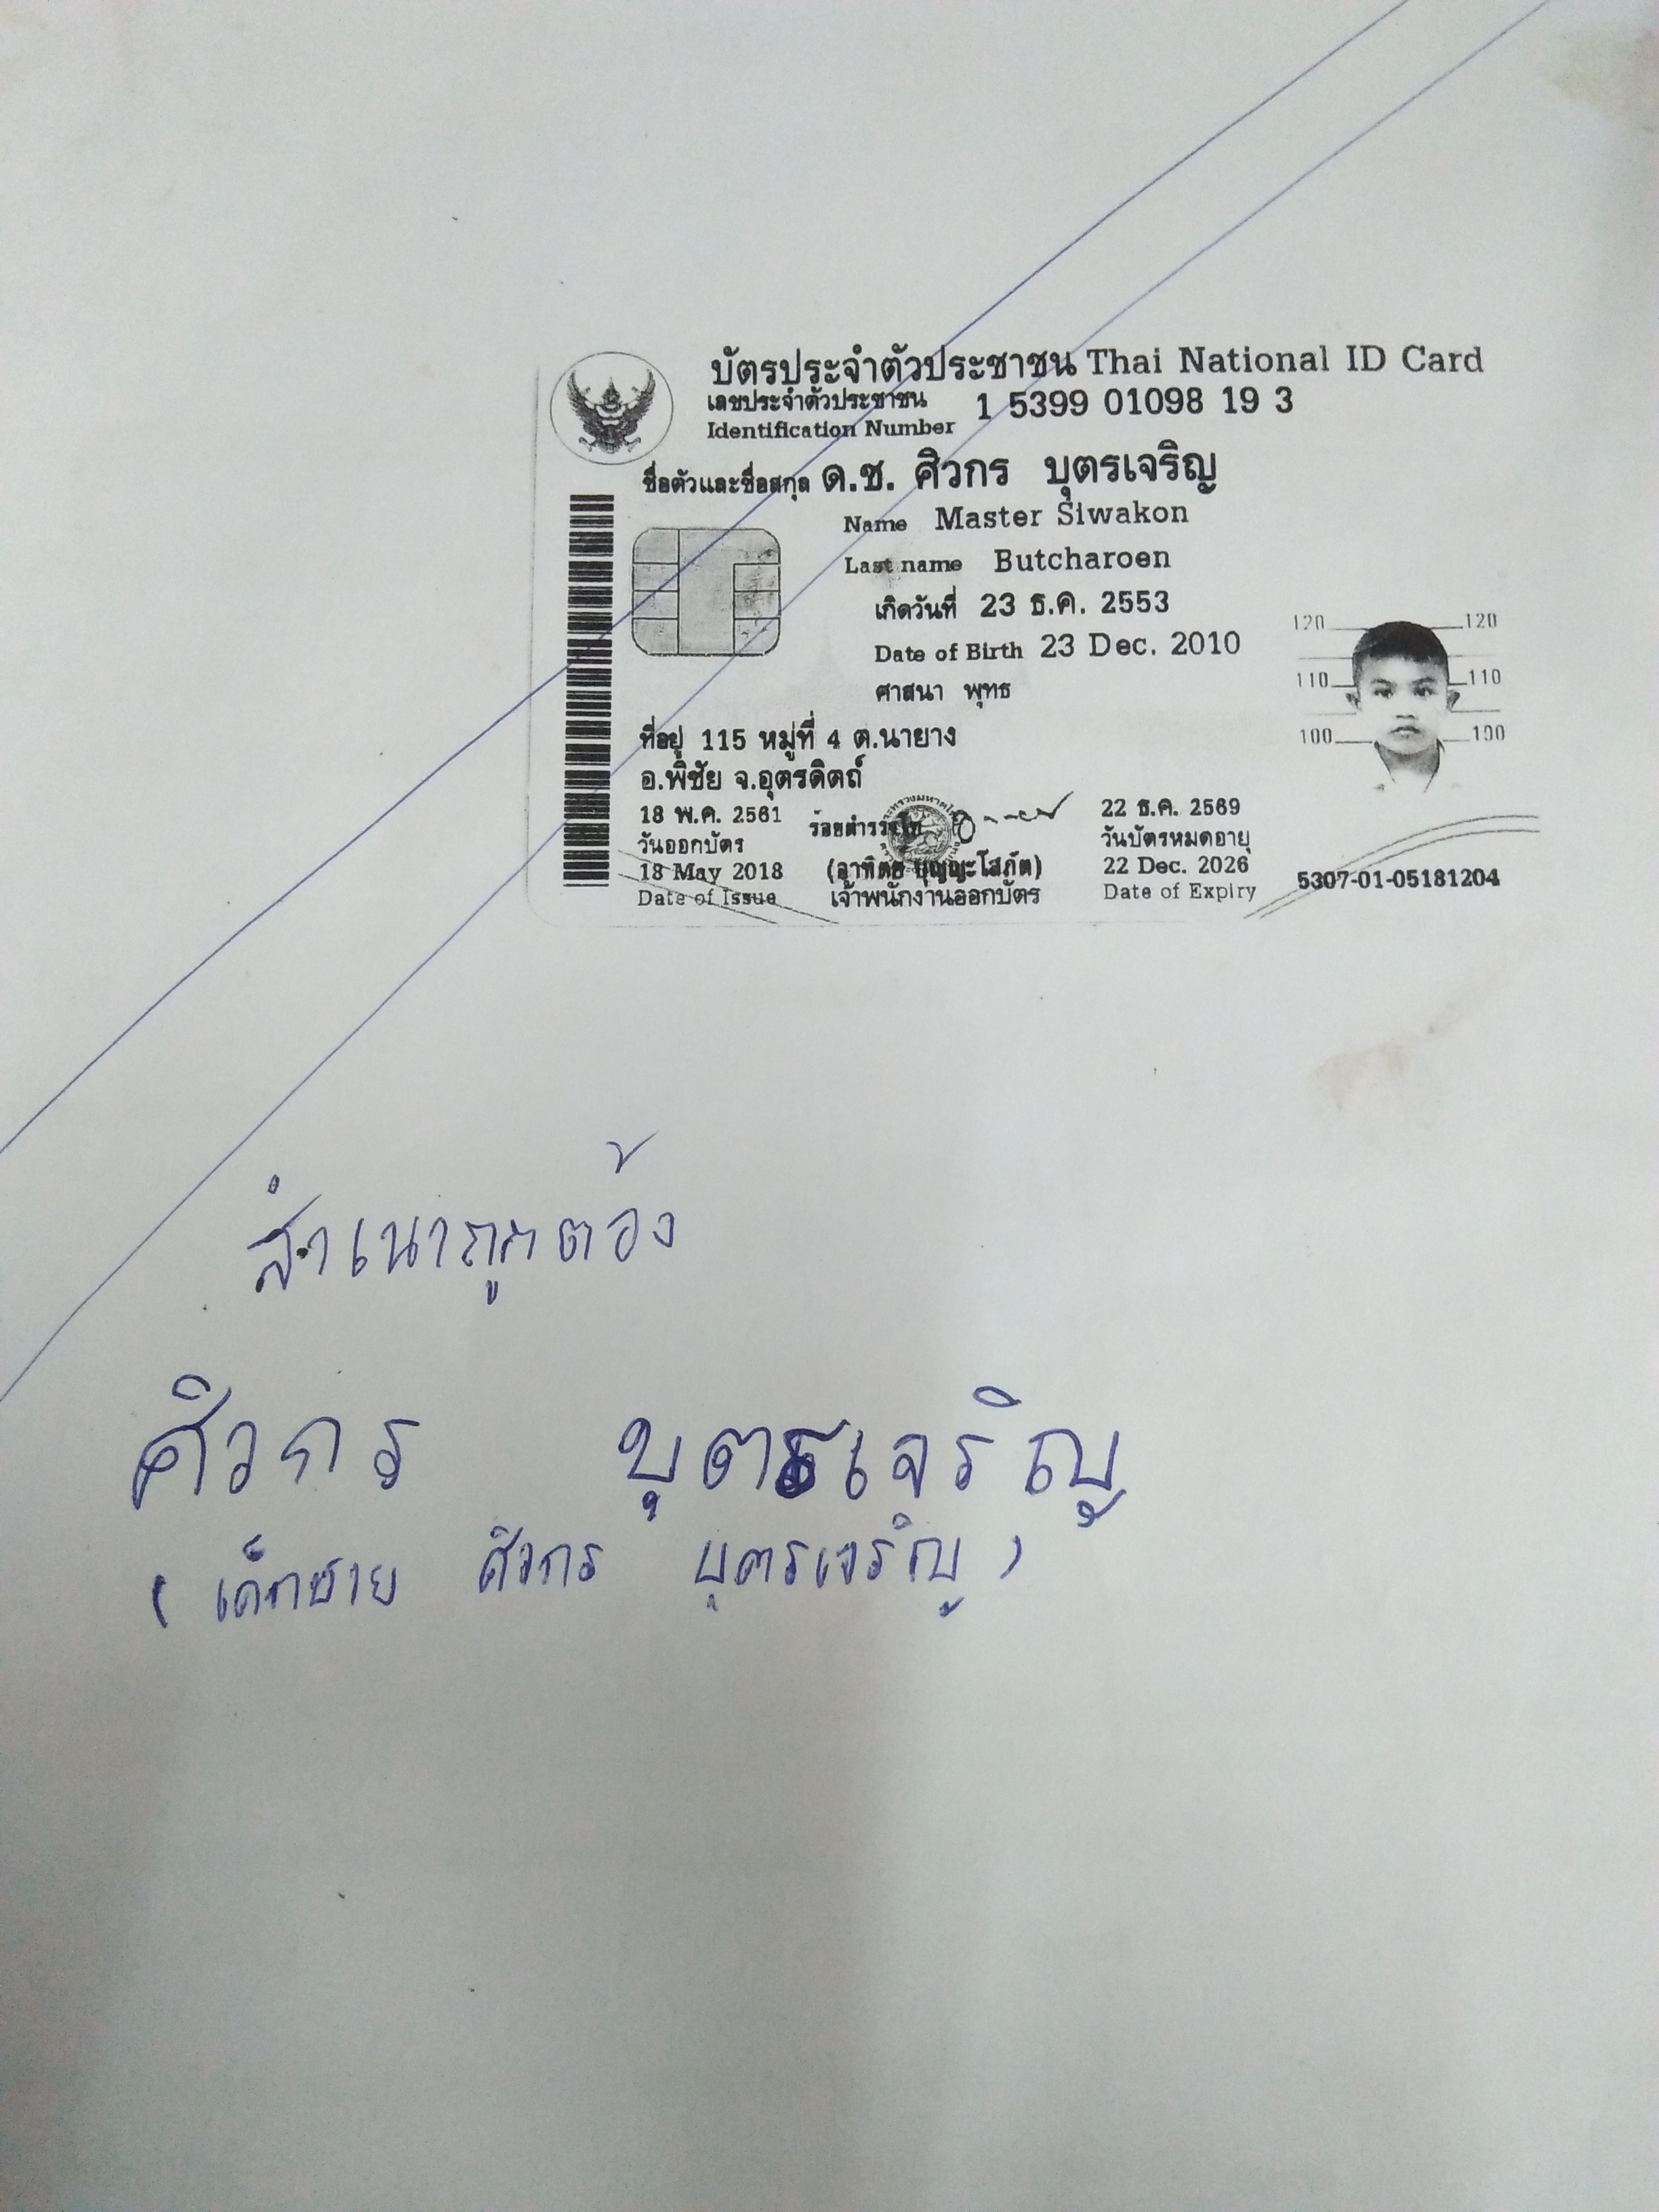 บัตรประจำตัวประชาชน Thai National ID Card
เลขประจำตัวประชาชน
Identification Number 1 5399 01098 19 3
ชื่อตัวและชื่อสกุล ด.ช. ศิวกร บุตรเจริญ
Name Master Siwakon
Last name Butcharoen
เกิดวันที่ 23 ธ.ค. 2553
Date of Birth 23 Dec. 2010
ศาสนา พุทธ
ที่อยู่ 115 หมู่ที่ 4 ต.นายาง
อ.พิชัย จ.อุตรดิตถ์
120 120
110 110
100 100
18 พ.ค. 2561
วันออกบัตร
18 May 2018
Date of Issue
(อาทิตย์ บุญญะโสภัต)
เจ้าพนักงานออกบัตร
22 ธ.ค. 2569
วันบัตรหมดอายุ
22 Dec. 2026
Date of Expiry
5307-01-05181204
สำเนาถูกต้อง
ศิวกร บุตรเจริญ
(เด็กชาย ศิวกร บุตรเจริญ)